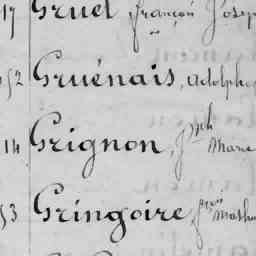 17 Gruel françois Josep
"
52 Gruénais, adolphe
14 Grignon, Jph Marie
53 Gringoire, fçois Mathu